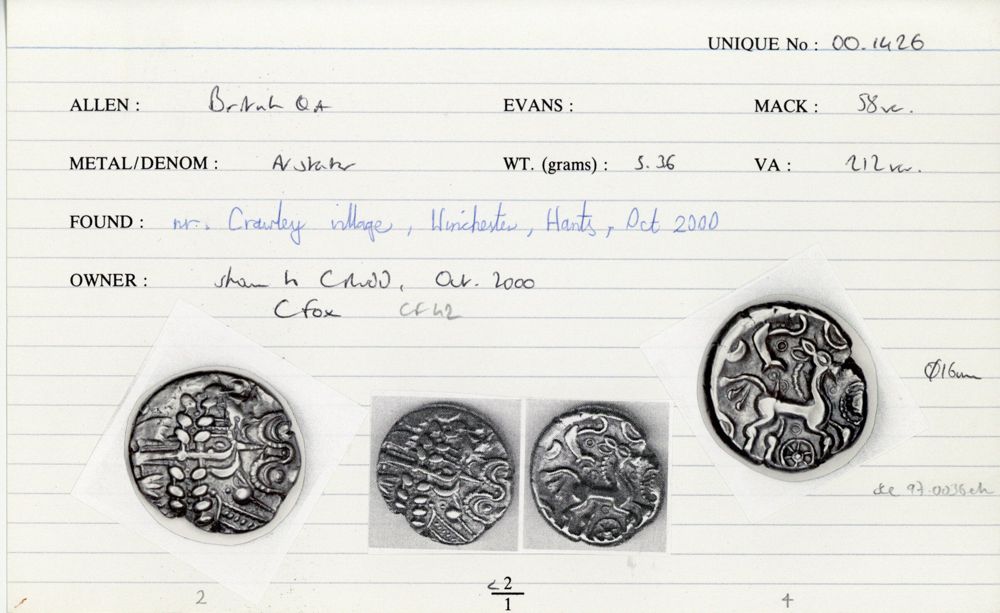 UNIQUE No : 00.1426
ALLEN : British QA EVANS : MACK : 58var.
METAL/DENOM : AV stater WT. (grams) : 5.36 VA : 212 var.
FOUND : nr. Crawley village, Winchester, Hants, Oct 2000
OWNER : shown to CRUDD, Oct. 2000
C Fox CF42
Ø16mm
see 97.0036 etc
2 <2/1 4